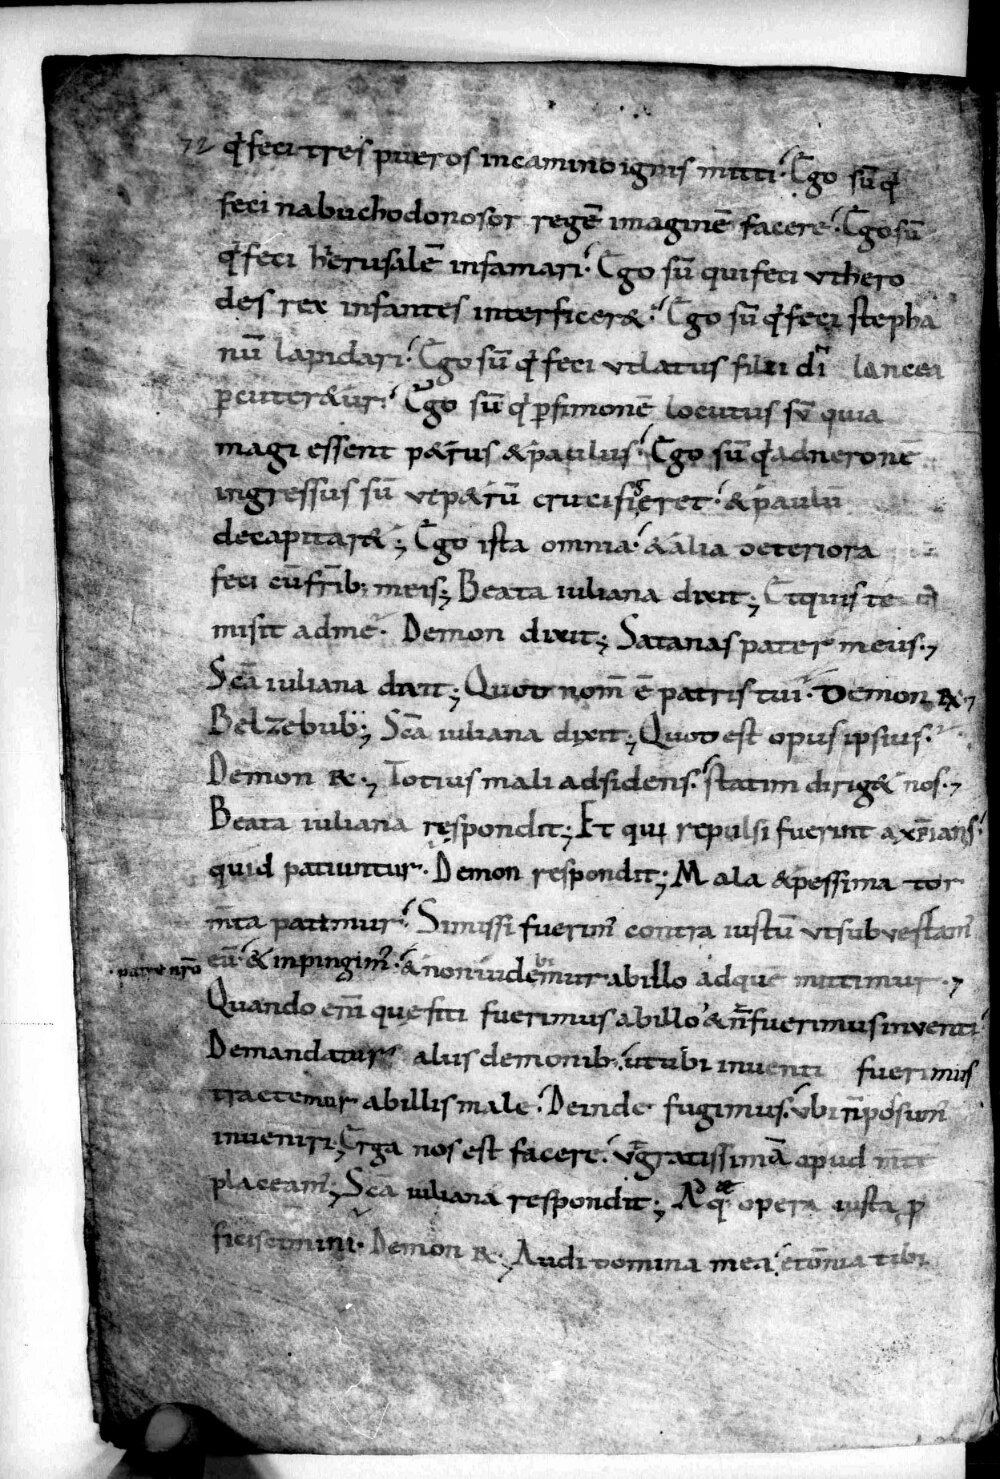 72 qd feci tres pueros incamino ignis mitti. Ego sū qd
feci nabuchodonosor regē imaginē facere. Ego sū
qd feci hierusalē infamari. Ego sū qui feci ut hero
des rex infantes interficer&. Ego sū qd feci stepha
nū lapidari. Ego sū qd feci ut latus filii dī lancea
ꝑcuter&ur. Ego sū qd ꝑ simonē locutus sū quia
magi essent p&rus &paulus. Ego sū qd ad neronē
ingressus sū ut p&rū crucifigeret. &paulū
decapitar&; Ego ista omnia. &alia deteriora
feci cū frīb; meis; Beata iuliana dixit; Et quis te
misit ad me. Demon dixit; Satanas pater meus.
Scā iuliana dixit; Quod nom̄ ē patris tui. Demon ꝶ
Belzebub; Scā iuliana dixit; Quod est opus ipsius.
Demon ꝶ. Totius mali adsidens. statim dirig& nos.
Beata iuliana respondit; Et qui repulsi fuerint a xp̄ianis.
quid patiuntur. Demon respondit; Mala &pessima tor
m̄ta patimur. Si missi fuerim̄ contra iustū ut subvertam̄
eū. &inpingim̄. & non uidebimur ab illo ad quē mittimur.
patre nr̄o
Quando em̄ quesiti fuerimus ab illo & n̄ fuerimus inventi
Demandatur aliis demonib; ut ubi inuenti fuerimus
tractemur ab illis male. Deinde fugimus. ubi n̄ possum̄
inueniri; Erga nos est facere. gratissimā apud
placeam̄; Scā iuliana respondit; Ad q; opera iusta ꝓ
ficiscimini. Demon ꝶ; Audi domina mea. et om̄ia tibi